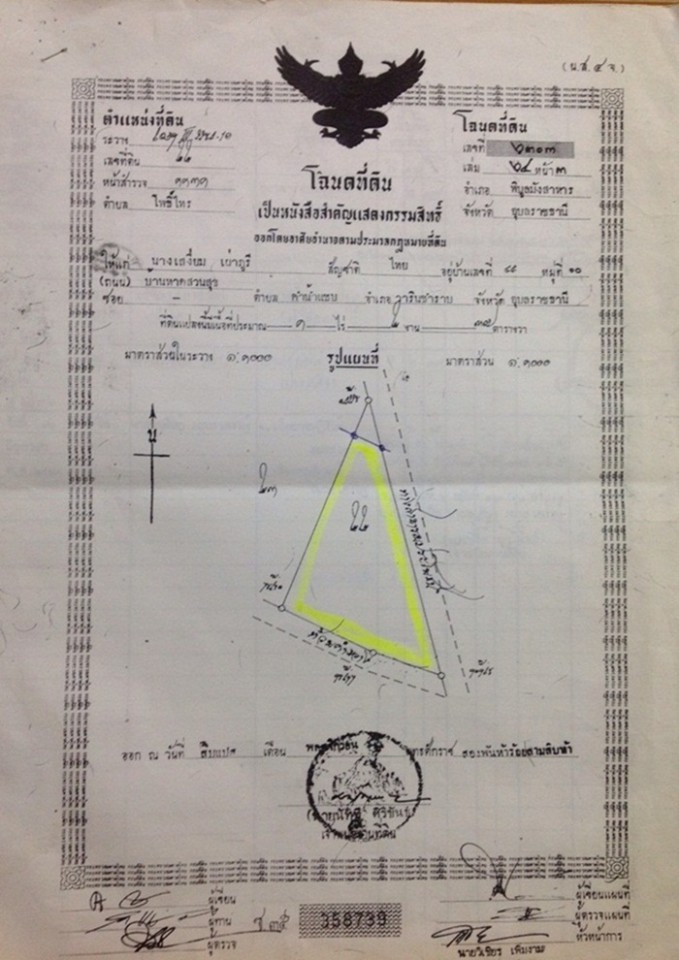 (น.ส. ๔ จ.)
ตำแหน่งที่ดิน
ระวาง
เลขที่ดิน ๒๒
หน้าสำรวจ ๑๓๓๑
ตำบล โพธิ์ไทร
โฉนดที่ดิน
เลขที่ ๖๒๓๓
เล่ม หน้า ๓
อำเภอ พิบูลมังสาหาร
จังหวัด อุบลราชธานี
โฉนดที่ดิน
เป็นหนังสือสำคัญแสดงกรรมสิทธิ์
ออกโดยอาศัยอำนาจตามประมวลกฎหมายที่ดิน
ให้แก่ สัญชาติ ไทย อยู่บ้านเลขที่ หมู่ที่ ๑๐
(ถนน) บ้านหาดสวนสุข
ซอย – ตำบล คำน้ำแซบ อำเภอ วารินชำราบ จังหวัด อุบลราชธานี
ที่ดินแปลงนี้มีเนื้อที่ประมาณ ๑ ไร่ ๒ งาน ตารางวา
มาตราส่วนในระวาง ๑:๑๐๐๐
รูปแผนที่
มาตราส่วน ๑:๑๐๐๐
น
๒๓
๒๒
ทางสาธารณประโยชน์
ออก ณ วันที่ สิบแปด เดือน พฤศจิกายน พุทธศักราช สองพันห้าร้อยสามสิบห้า
เจ้าพนักงานที่ดิน
ผู้เขียน
ผู้ทาน
ผู้ตรวจ
358739
ผู้เขียนแผนที่
ผู้ตรวจแผนที่
หัวหน้าการ
นายวิเชียร เพิ่มงาม